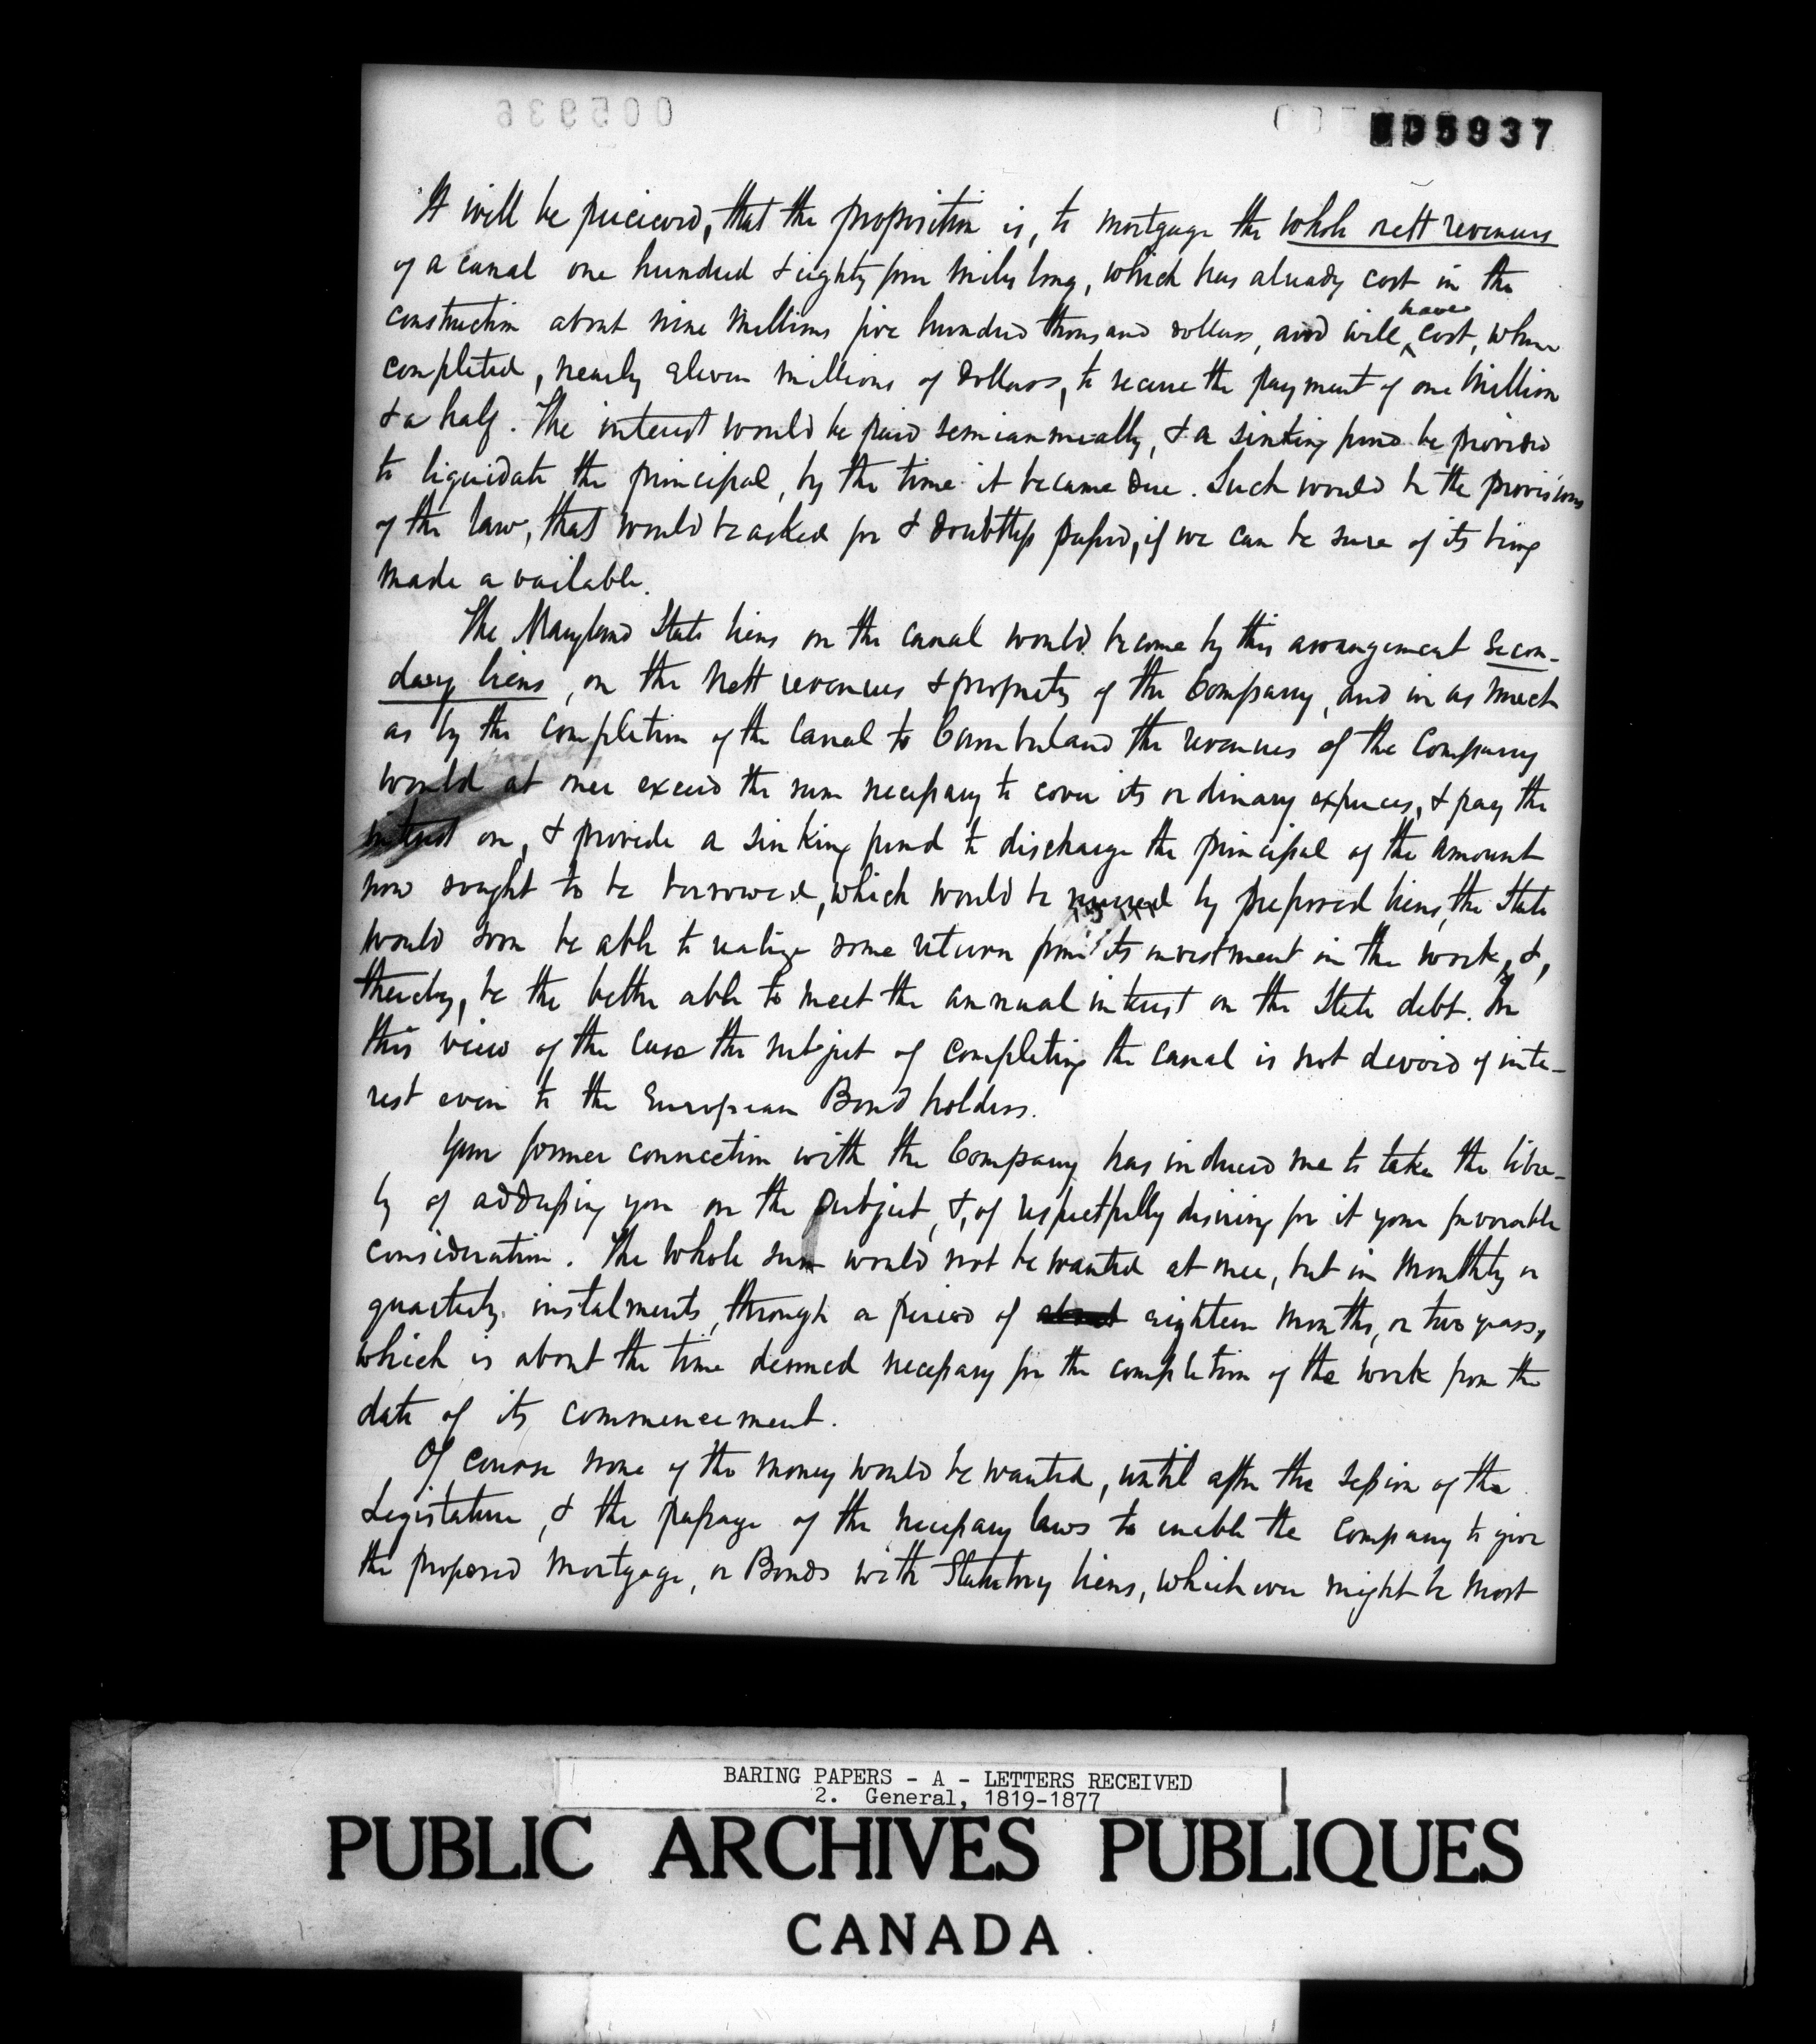 005936
005937
It will be perceived, that the proposition is, to mortgage the whole nett revenues
of a canal one hundred & eighty four miles long, which has already cost in the
have
construction about nine millions five hundred thousand dollars, and will cost, when
completed, nearly eleven millions of dollars, to secure the payment of one million
& a half. The interest would be paid semiannually, & a sinking fund be provided
to liquidate the principal, by the time it became due. Such would be the provisions
of the law, that would be asked for & doubtless passed, if we can be sure of its being
made available.
The Maryland State liens on the canal would become by this arrangement secon-
dary liens, on the nett revenues & property of the Company, and in as much
as by the completion of the Canal to Cumberland the revenues of the Company
would at once exceed the sum necessary to cover its ordinary expenses, & pay the
interest on, & provide a sinking fund to discharge the principal of the amount
now sought to be borrowed, which would be secured by preferred liens, the State
would soon be able to realize some return from its investment in the work, &,
thereby, be the better able to meet the annual interest on the State debt. In
this view of the case the subject of completing the canal is not devoid of inte-
rest even to the European Bond holders.
Your former connection with the Company has induced me to take the liber-
ty of addressing you on the subject, &, of respectfully desiring for it your favorable
consideration. The whole sum would not be wanted at once, but in monthly or
quarterly instalments, through a period of about eighteen months, or two years,
which is about the time deemed necessary for the completion of the work from the
date of its commencement.
Of course none of the money would be wanted, until after the session of the
Legislature, & the passage of the necessary laws to enable the company to give
the proposed mortgage, or Bonds with Statutory liens, which ever might be most
BARING PAPERS - A - LETTERS RECEIVED
2. General, 1819-1877
PUBLIC ARCHIVES PUBLIQUES
CANADA